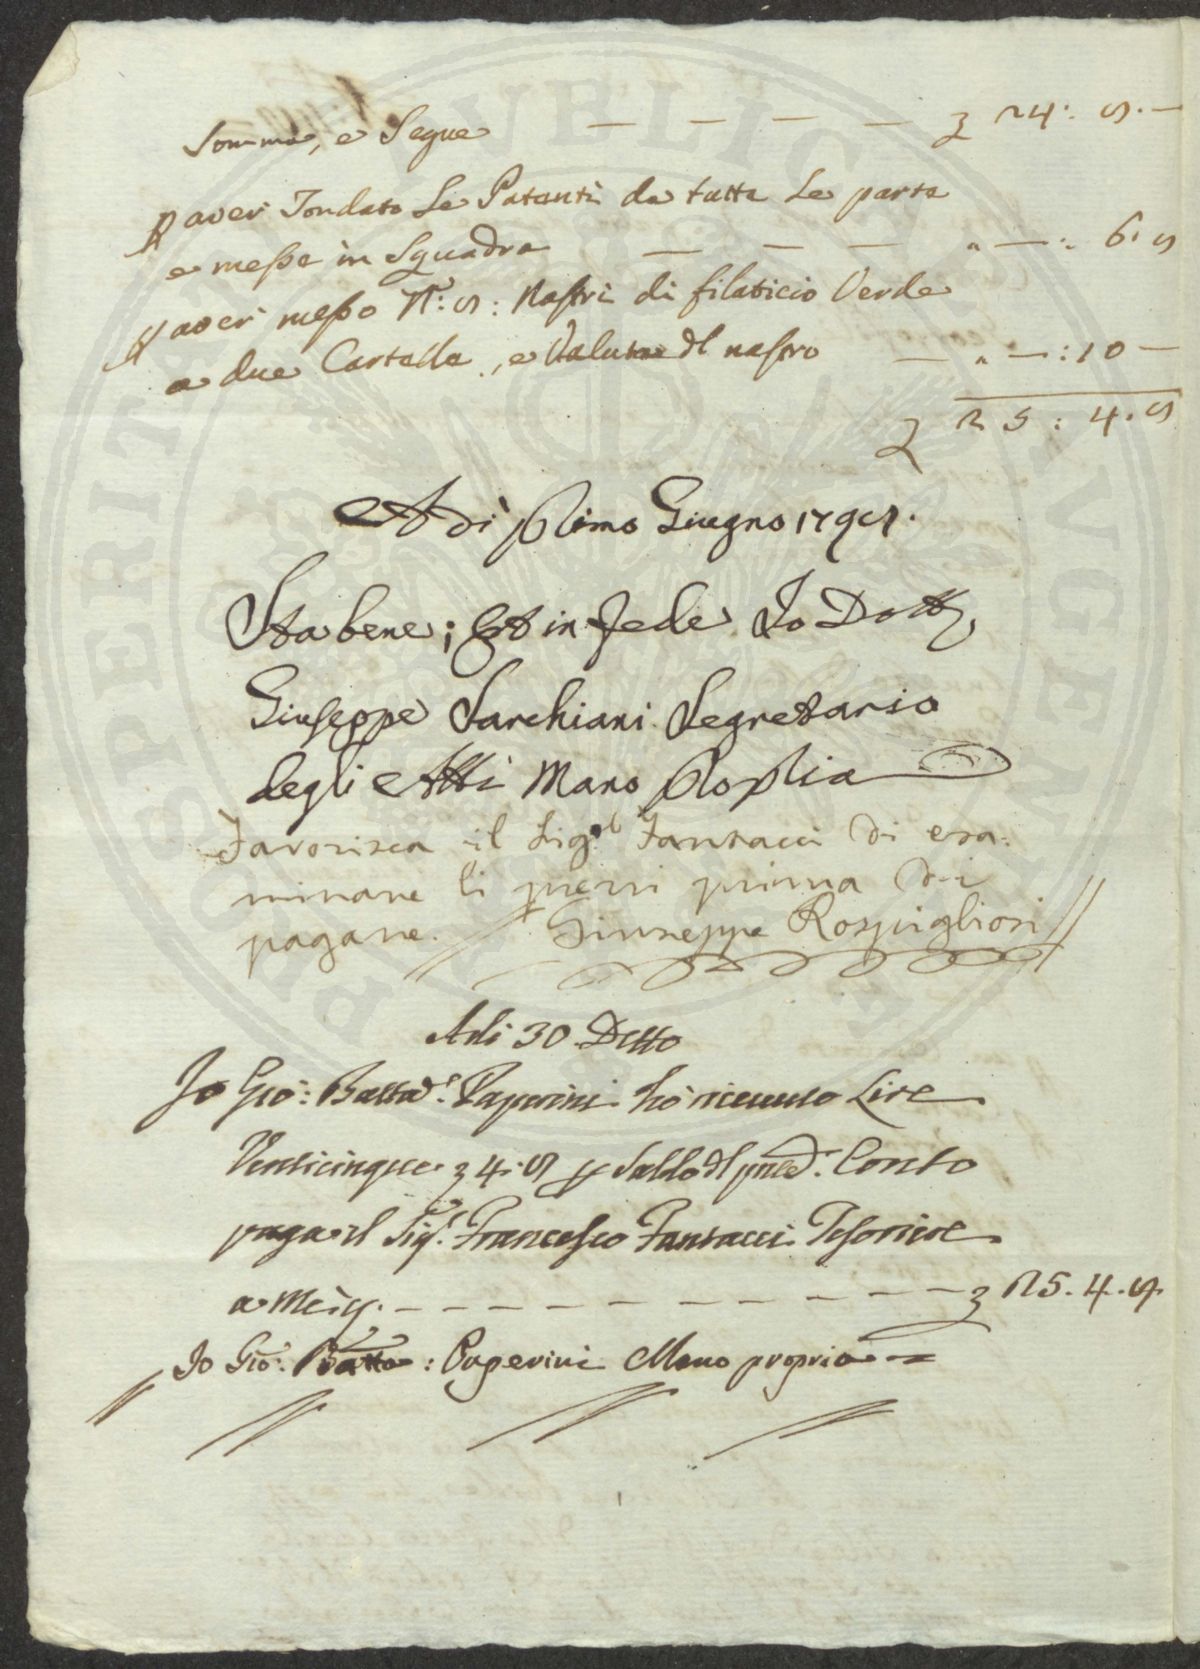 Somma, e Segue — — — — £ 24: 8.—
p aver Tondato Le Patenti da tutte Le parte
e messe in Squadra — — — " —: 6. 8
p aver messo N.° 8: Nastri di filaticio Verde
a due Cartelle, e Valuta dl nastro — " —: 10 —
£ 25: 4. 8
Adì Primo Giugno 1798.
Sta bene; Et in Fede Io Dott.
Giuseppe Sarchiani Segretario
degli Atti Mano Propria
Favorisca il Sig.r Fantacci di esa-
minare li prezzi prima di
pagare. // Giuseppe Rospigliosi //
Adi 30 Detto
Io Gio: Batta. Paperini hò ricevuto Lire
Venticinque £ 4. 8 p Saldo dl pnte. Conto
paga il Sig.r Francesco Fantacci Tesoriere
a £ 25. 4. 8.
Io Gio: Batta: Paperini Mano propria
PROSPERITATI PVBLICAE AVGENDAE